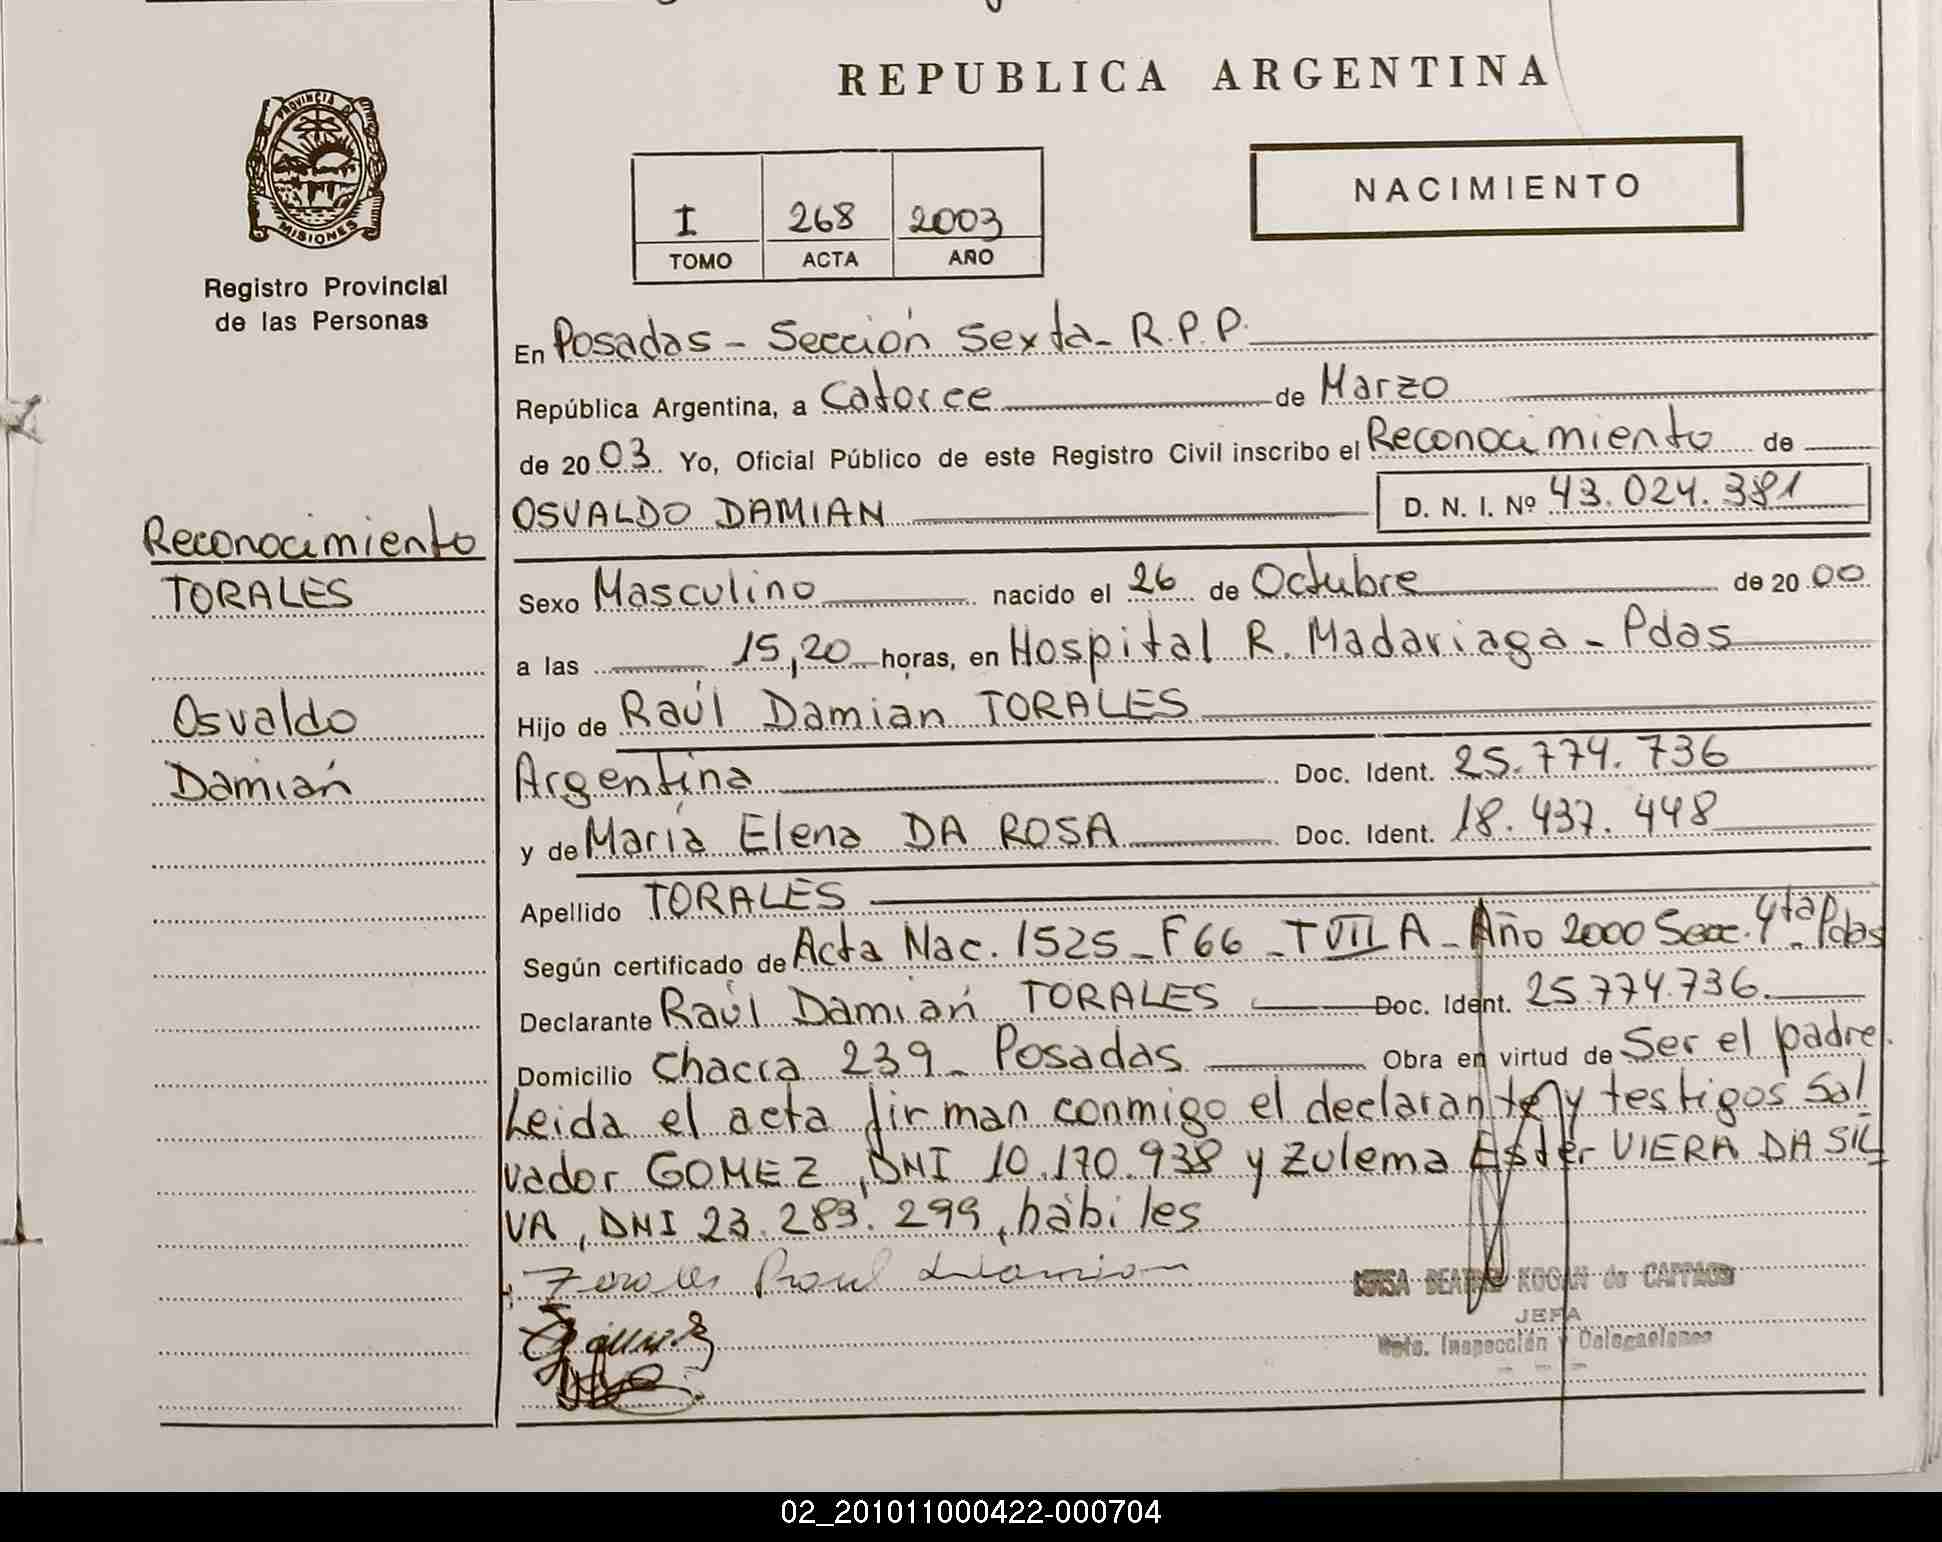 REPUBLICA ARGENTINA
PROVINCIA DE
MISIONES
Registro Provincial
de las Personas
NACIMIENTO
I 268 2003
TOMO ACTA AÑO
En Posadas - Sección Sexta - R.P.P.
República Argentina, a Catorce de Marzo
de 20 03 Yo, Oficial Público de este Registro Civil inscribo el Reconocimiento de
OSVALDO DAMIAN D. N. I. Nº 43.024.381
Reconocimiento
TORALES
Osvaldo
Damián
Sexo Masculino nacido el 26 de Octubre de 20 00
a las 15,20 horas, en Hospital R. Madariaga - Pdas
Hijo de Raúl Damián TORALES
Argentina Doc. Ident. 25.774.736
y de María Elena DA ROSA Doc. Ident. 18.437.448
Apellido TORALES
Según certificado de Acta Nac. 1525 - F 66 - T VII A - Año 2000 Secc. 4ta - Pdas
Declarante Raúl Damián TORALES Doc. Ident. 25.774.736.
Domicilio Chacra 239 - Posadas Obra en virtud de Ser el padre.
Leida el acta firman conmigo el declarante y testigos Sal
vador GOMEZ, DNI 10.170.938 y Zulema Ester VIERA DA SIL
VA, DNI 23.283.299, hábiles
Torales Raul Damian
LUISA BEATRIZ KOGAN de CAPPAGO
JEFA
Dpto. Inspección y Delegaciones
02_201011000422-000704